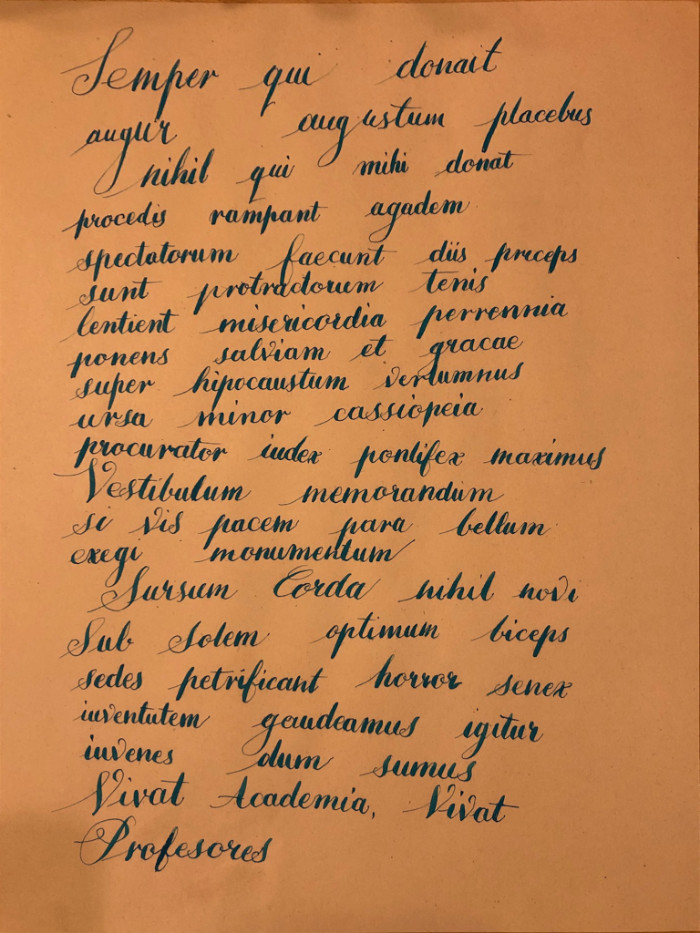 Semper qui donait
augur augustum placebus
nihil qui mihi donat
procedis rampant agadem
spectatorum faecunt diis preceps
sunt protractorum tenis
lentient misericordia perrennia
ponens salviam et gracae
super hipocaustum vertumnus
ursa minor cassiopeia
procurator iudex pontifex maximus
Vestibulum memorandum
si vis pacem para bellum
exegi monumentum
Sursum Corda nihil novi
Sub Solem optimum biceps
sedes petrificant horror senex
iuventutem gaudeamus igitur
iuvenes dum sumus
Vivat Academia, Vivat
Profesores